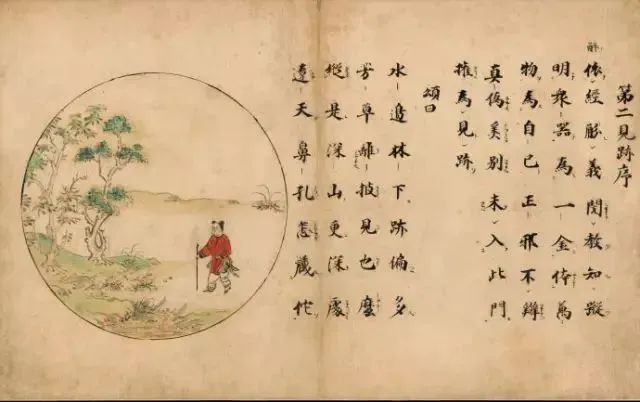 第二見跡序
依經解義閲教知蹤
明衆器為一金体萬
物為自己正邪不辨
真偽奚別未入此門
權為見跡
頌曰
水邊林下跡偏多
芳草離披見也麼
縱是深山更深處
遼天鼻孔怎藏佗